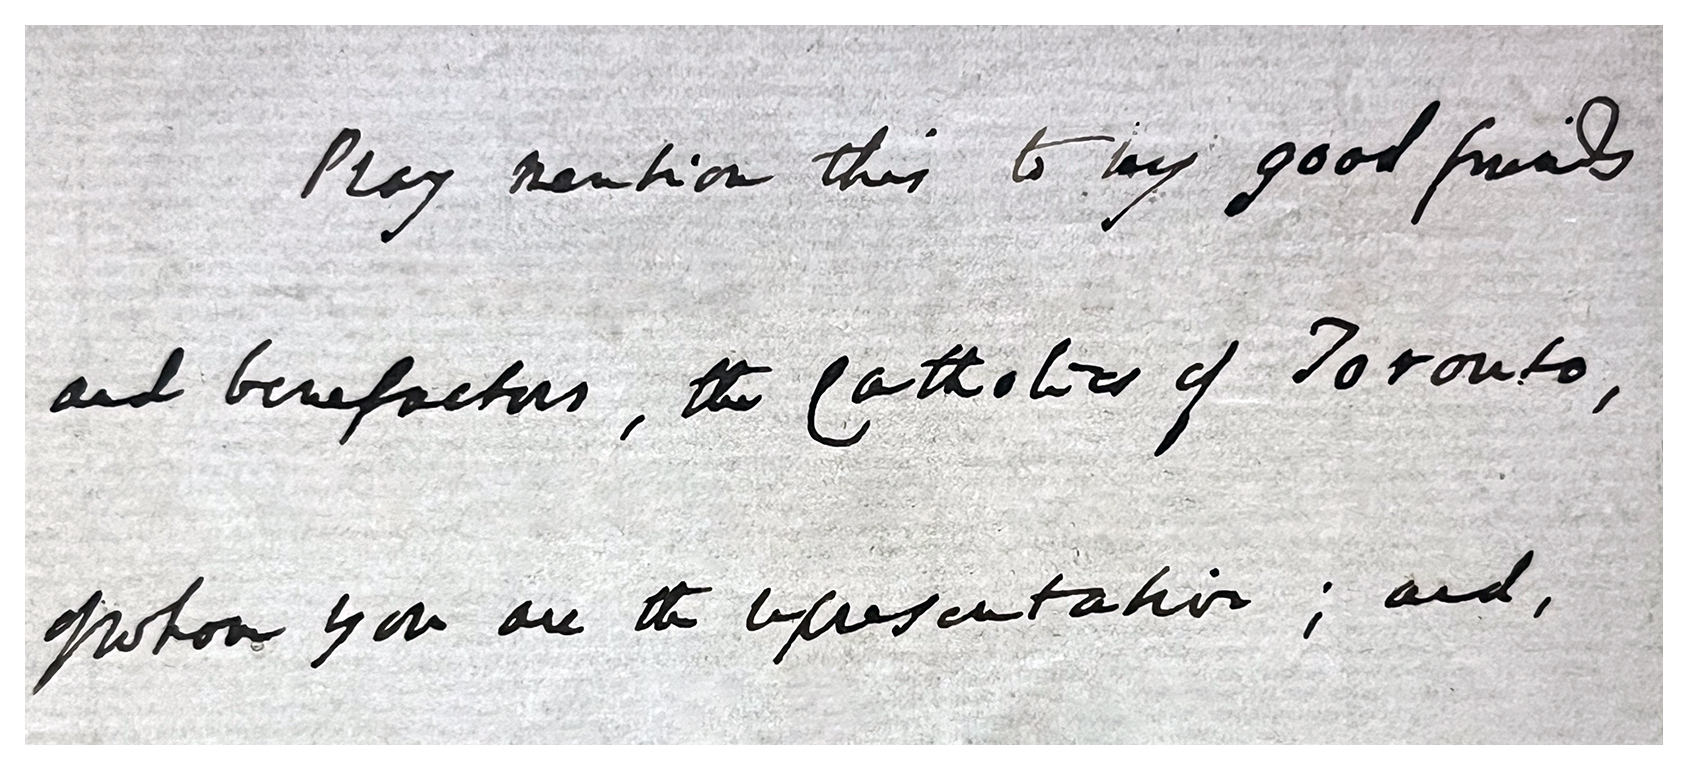 Pray mention this to my good friends
and benefactors, the Catholics of Toronto,
of whom you are the representation; and,